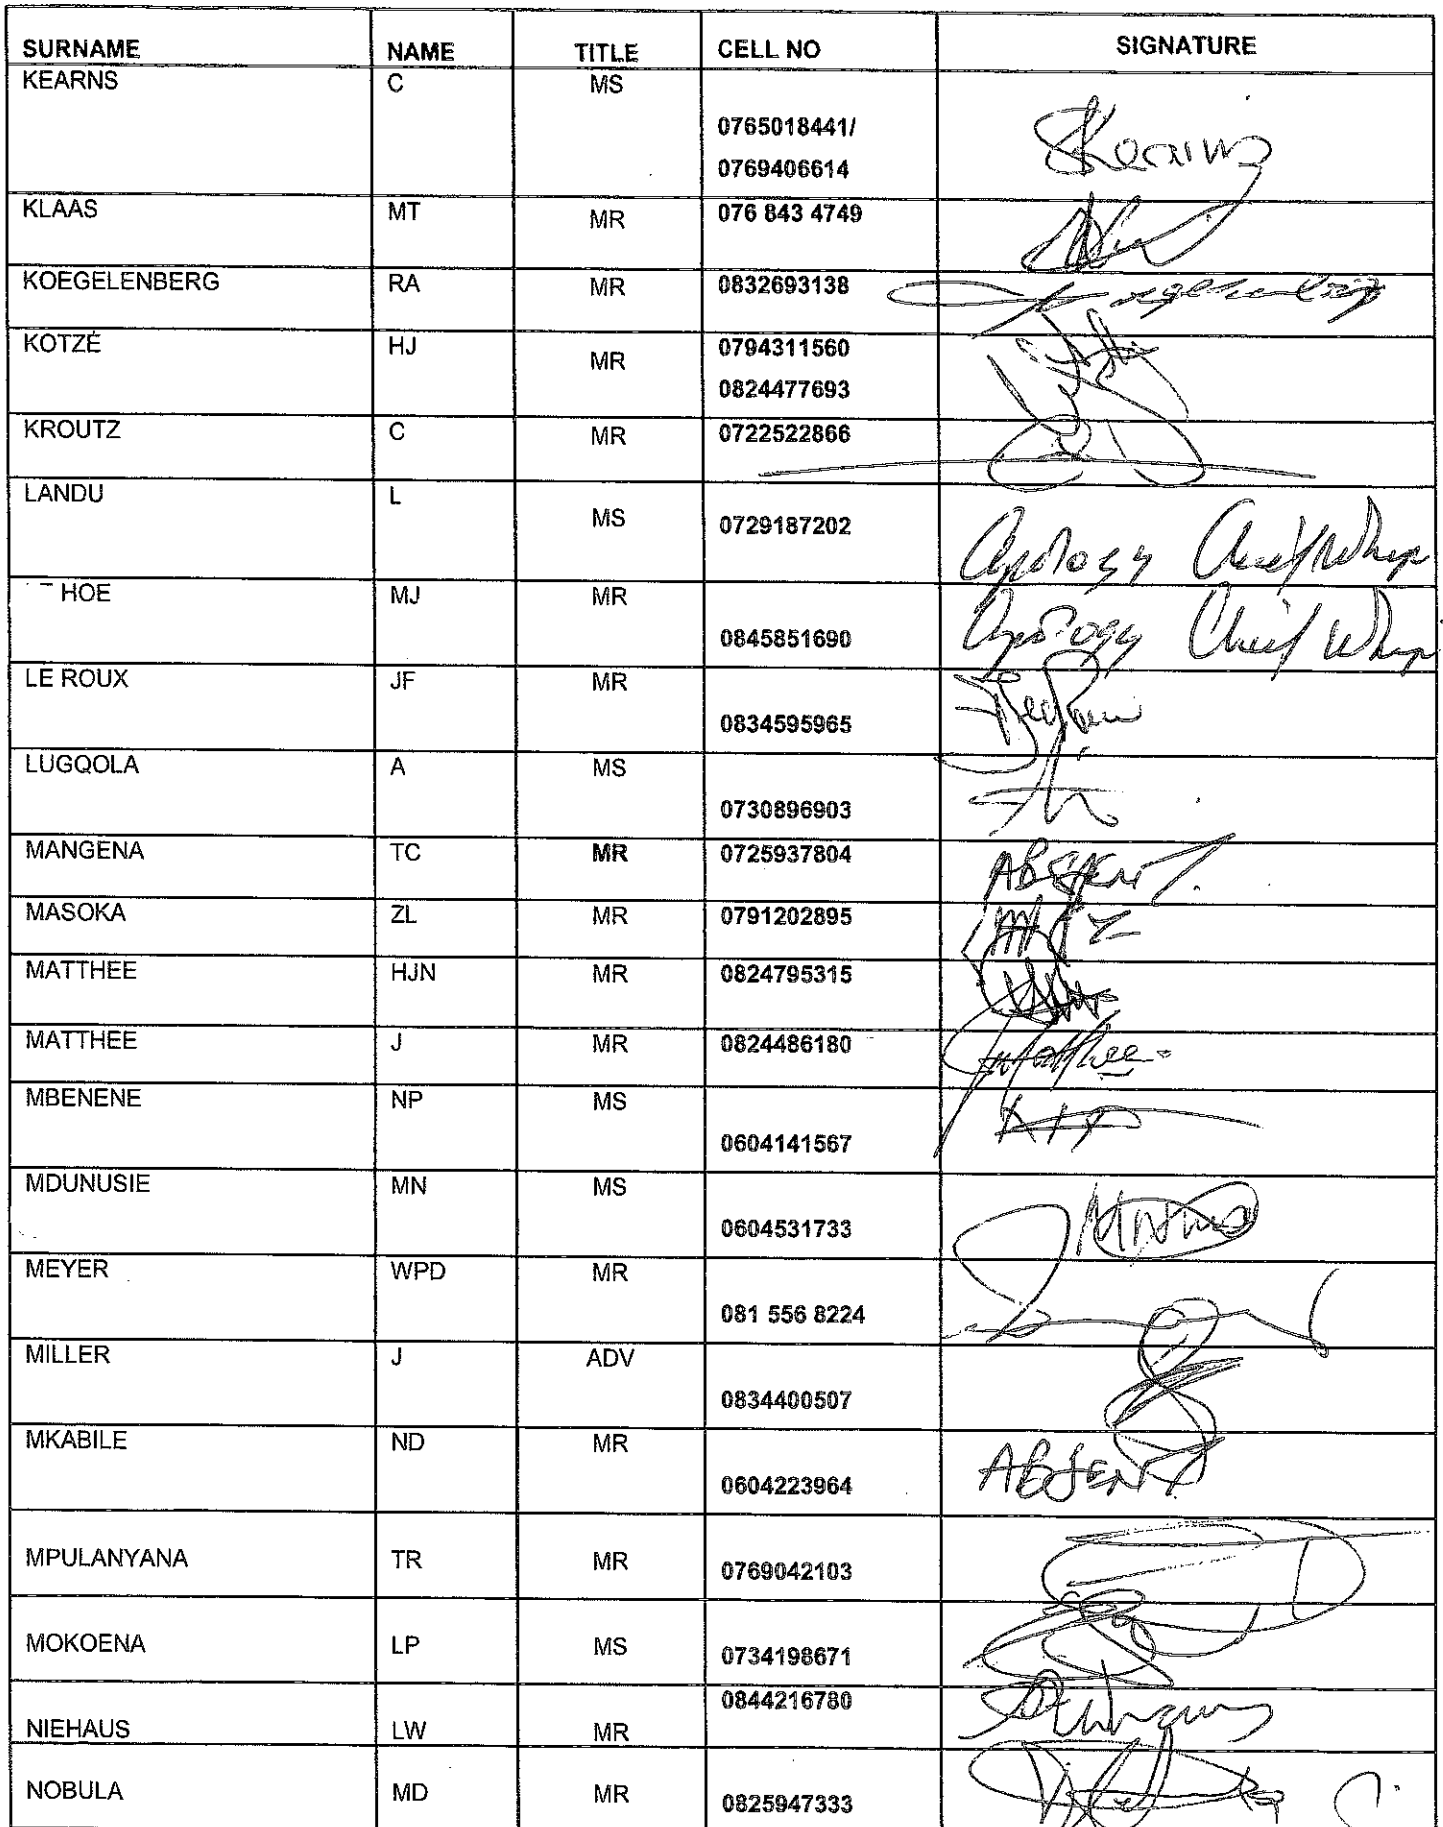 SURNAME NAME TITLE CELL NO SIGNATURE
KEARNS C MS
0765018441/
0769406614
KLAAS MT MR 076 843 4749
KOEGELENBERG RA MR 0832693138
KOTZÉ HJ MR 0794311560
0824477693
KROUTZ C MR 0722522866
LANDU L MS 0729187202 Apology Chief Whip
HOE MJ MR
0845851690 Apology Chief Whip
LE ROUX JF MR
0834595965
LUGQOLA A MS
0730896903
MANGENA TC MR 0725937804 ABSENT
MASOKA ZL MR 0791202895
MATTHEE HJN MR 0824795315
MATTHEE J MR 0824486180 JMatthee
MBENENE NP MS
0604141567
MDUNUSIE MN MS
0604531733
MEYER WPD MR
081 556 8224
MILLER J ADV
0834400507
MKABILE ND MR
0604223964 ABSENT
MPULANYANA TR MR 0769042103
MOKOENA LP MS 0734198671
0844216780
NIEHAUS LW MR
NOBULA MD MR 0825947333